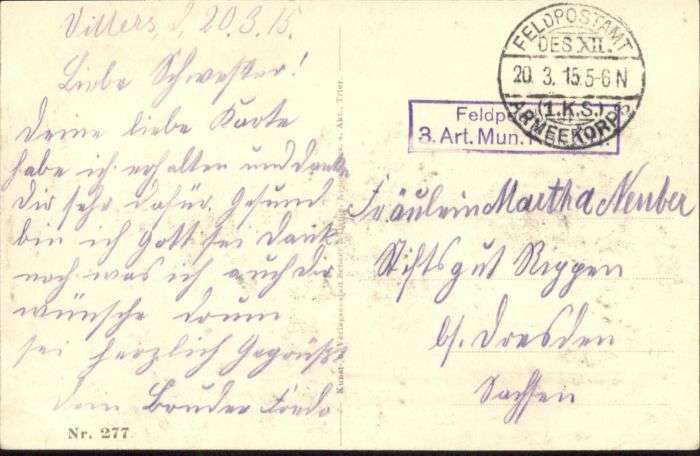 Villers, d, 20.3.15.
Liebe Schwester!
Deine liebe Karte
habe ich erhalten und danke
Dir sehr dafür. Gesund
bin ich Gott sei Dank
noch was ich auch Dir
wünsche drum
sei herzlich Gegrüßt
dein Bruder
Nr. 277
FELDPOSTAMT
DES XII.
20. 3. 15.5-6 N
(1.K.S.)
ARMEEKORPS
Feldpo
3. Art. Mun.
Fräulein Martha Neuber
Stiftsgut Rippen
b/. Dresden
Sachsen
Kunst- u. Verlagsanstalt Akt., Trier